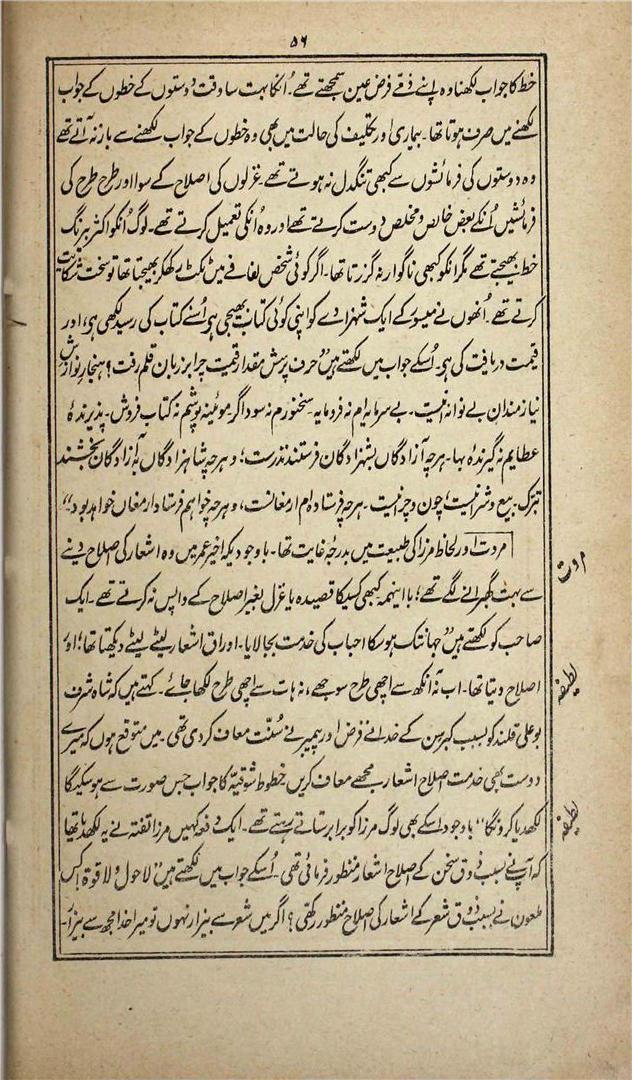 ۵۶
خط کا جواب لکھنا وہ اپنے ذمے فرض عین سمجھتے تھے۔ اُنکا بہت سا وقت دوستوں کے خطوں کے جواب
لکھنے میں صرف ہوتا تھا۔ بیماری اور تکلیف کی حالت میں بھی وہ خطوں کے جواب لکھنے سے باز نہ آتے تھے
وہ دوستوں کی فرمائشوں سے کبھی تنگدل نہ ہوتے تھے۔ غزلوں کی اصلاح کے سوا اور طرح طرح کی
فرمائشیں اُنکے بعض خالص و مخلص دوست کرتے تھے اور وہ اُنکی تعمیل کرتے تھے۔ لوگ اُنکو اکثر بیرنگ
خط بھیجتے تھے مگر انکو کبھی ناگوار نہ گزرتا تھا۔ اگر کوئی شخص لفافے میں ٹکٹ رکھکر بھیجتا تھا تو سخت شکایت
کرتے تھے۔ اُنھوں نے میسور کے ایک شہزادے کو اپنی کوئی کتاب بھیجی ہی اُسنے کتاب کی رسید لکھی ہی، اور
قیمت دریافت کی ہی۔ اُسکے جواب میں لکھتے ہیں "حرف پرسش مقدار قیمت چرا بر زبان قلم رفت؟ ہنجار نوازش
نیازمندان بے نوا نہ اینست۔ بے سرمایہ ام نہ فرومایہ۔ سخنورم نہ سوداگر موئینہ پوشم نہ کتاب فروش۔ پذیرندۂ
عطایم نہ گیرندۂ بہا۔ ہرچہ آزادگاں بشہزادگان فرستند نذرست؛ و ہرچہ شاہزادگاں بآزادگان بخشند
تبرک بیع و شرا نیست؛ چون و چرا نیست۔ ہرچہ فرستادہ ام ارمغانست، و ہرچہ خواہم فرستاد ارمغاں خواہد بود۔"
مروت اور لحاظ مرزا کی طبیعت میں بدرجہ غایت تھا۔ باوجودیکہ اخیر عمر میں وہ اشعار کی اصلاح دینے
مروت
سے بہت گھبرانے لگے تھے؛ بااینہمہ کبھی کسیکا قصیدہ یا غزل بغیر اصلاح کے واپس نہ کرتے تھے۔ ایک
صاحب کو لکھتے ہیں "جہانتک ہو سکا احباب کی خدمت بجا لایا۔ اوراق اشعار لیٹے لیٹے دیکھتا تھا؛ اور
اصلاح دیتا تھا۔ اب نہ آنکھ سے اچھی طرح سوجھے، نہ ہات سے اچھی طرح لکھا جائے۔ کہتے ہیں کہ شاہ شرف
لطیفہ
بوعلی قلندر کو بسبب کبر سن کے خدا نے فرض اور پیمبر نے سُنّت معاف کر دی تھی۔ میں متوقع ہوں کہ میرے
دوست بھی خدمت اصلاح اشعار مجھے معاف کریں۔ خطوط شوقیہ کا جواب جس صورت سے ہو سکیگا
لکھدیا کرونگا" باوجود اسکے بھی لوگ مرزا کو برابر ستاتے رہتے تھے۔ ایک دفعہ کہیں مرزا تفتہ نے یہ لکھدیا تھا
لطیفہ
کہ آپنے بسبب ذوق سخن کے اصلاح اشعار منظور فرمائی تھی۔ اُسکے جواب میں لکھتے ہیں "لاحول ولا قوۃ! کس
ملعون نے بسبب ذوق شعر کے اشعار کی اصلاح منظور رکھی؟ اگر میں شعر سے بیزار نہوں تو میرا خدا مجھ سے بیزار۔